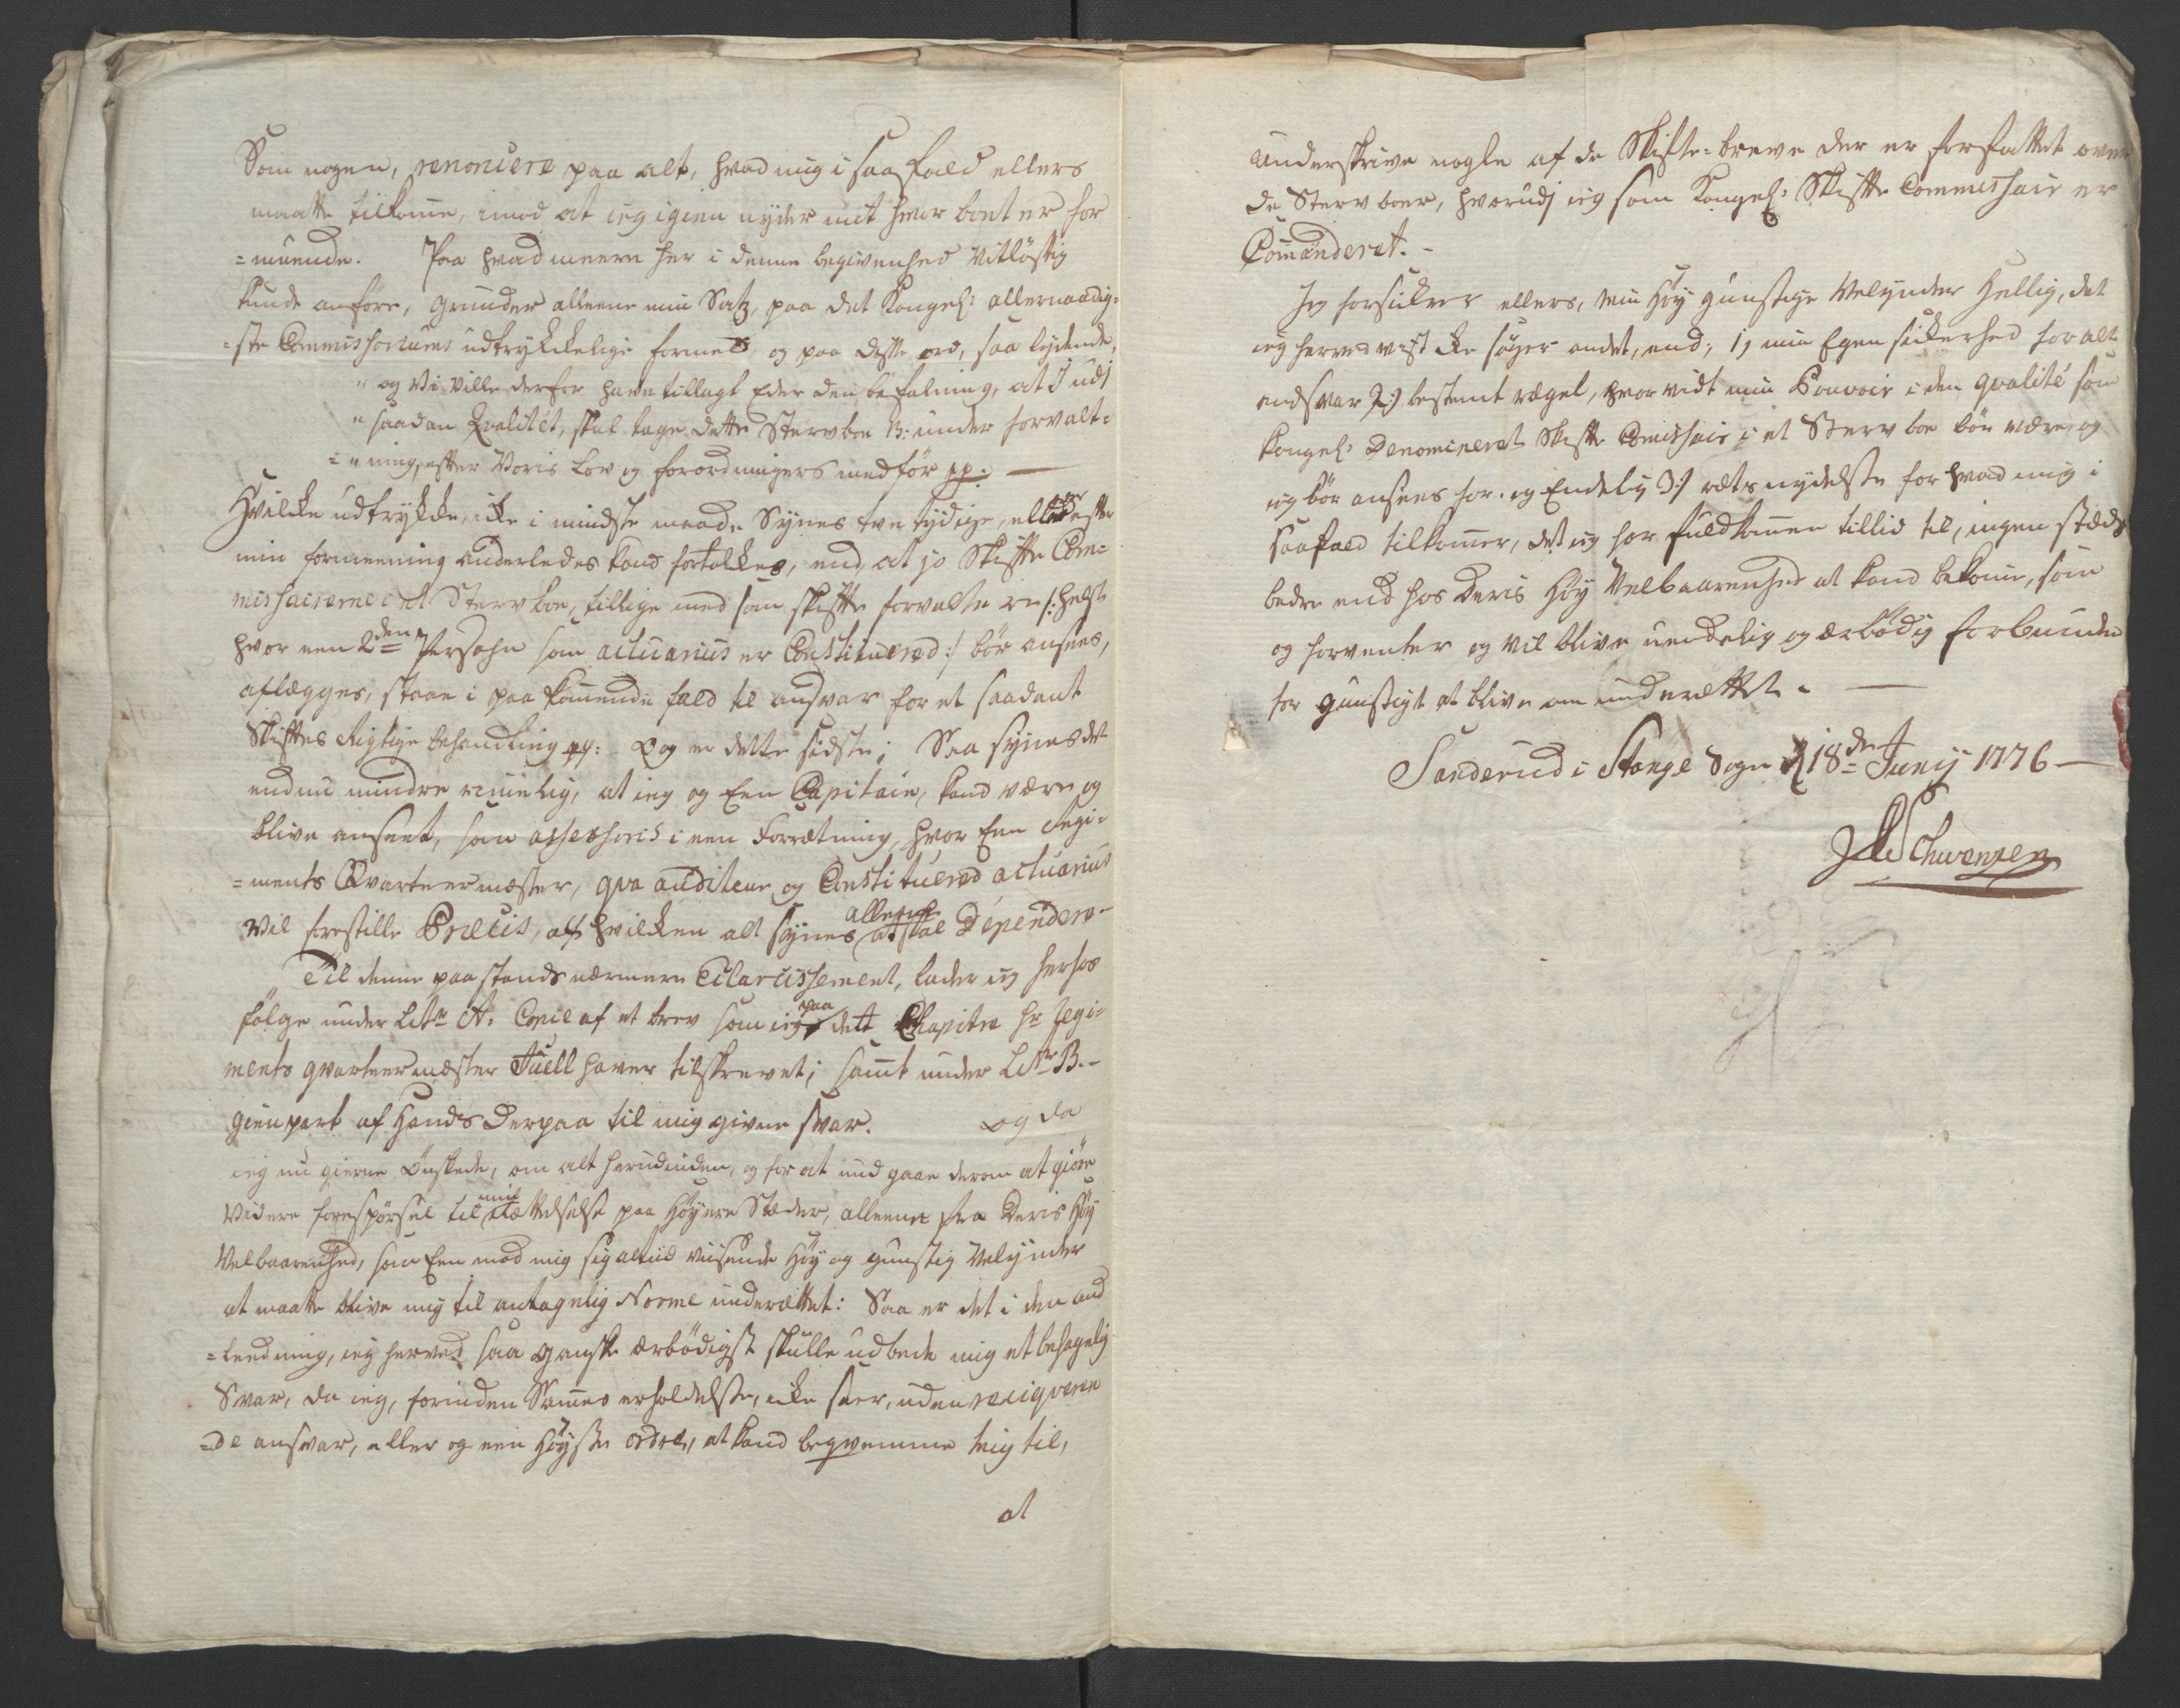 Som nogen, renoncere paa alt, hvad mig i saa fald ellers
maatte tilkomme, imod at ieg igien nyder mit hvor boet er for
=muende. Paa hvad meere her i denne begivenhed Vitløftig
kunde anføre, grunder alleene min Satz, paa det Kongel: allernaadig=
=ste Commissoriums udtrykkelige formel og paa disse ord, saa lydende,
" og Vi Ville derfor have tillagt Eder den befalning, at I udj
" saadan Qvalitét, skal tage dette Sterv boe B: under forvalt=
=" ning, efter Voris Lov og forordningers medfør pp: —
Hvilke udtrykke, icke i mindste maade Synes tve tydige, eller efter
min formeening anderledes kand fortolkes, end at jo Skifte Com=
missairerne i et Stervboe, tillige med som skifte forvaltere /: helst
hvor een 2den Persohn som actuarius er Constituered :/ bør ansees,
aflegges, staae i paa kommende fald til ansvar for et saadant
Skiftes Rigtige behandling pp: Og er dette sidste; Saa synes det
endnu mindre rimelig, at ieg og Een Capitain, kand være og
blive anseet, som assessoris i een Forretning, hvor Een Regi=
=ments Qvarteermester, qva auditeur og Constituered actuarius
Vil forestille Præcis, af hvilken alt synes alleene at skal Dépendere -
Til denne paastands nærmere Eclarcissement, lader ieg herhos
følge under Litr A. Copie af et brev som ieg paa dett Chapitre Hr Regi=
ments qvarteermester Juell haver tilskrevet; samt under Litr B. -
gienpart af Hands derpaa til mig givne svar. og da
ieg nu gierne Ønskede, om alt herudinden, og for at und gaae derom at giøre
Videre forespørsel til min Rettelse paa Høyere Stæder, alleene fra Deris Høy
Velbaarenhed, som Een mod mig sig altiid viisende Høy og gunstig Velynder
at maatte blive mig til antagelig Norme underrettet: Saa er det i den and
=leedning, ieg herved saa ganske ærbødigst skulle udbede mig et behagelig
Svar, da ieg, forinden Sammes erholdelse, icke seer, uden reciqveren
=de ansvar, eller og een Høyste ordre, at kand beqvemme mig til,
at
Underskrive nogle af de Skifte=breve der er forfattet over
de Sterv boer, hvorudj ieg som Kongel: Skifte Commissair er
Commanderet. -
Jeg forsikrer ellers, min Høy gunstige Velynder Hellig, det
ieg herved vist icke søger andet, end; 1) min Egen sikerhed for alt
andsvar 2:) bestemt regel, hvor vidt min Pouvoir i den qvalité som
Kongel: Denomineret Skifte Comissair i et Sterv boe bør være, og
ieg bør ansees for. og Endelig 3:) rets nydelse for hvad mig i
saafald tilkommer, det ieg har fuldkommen tillid til, ingen stæds
bedre end hos Deris Høy Velbaarenhed at kand bekomme, som
og forventer og vil blive uendelig og ærbødig forbunden
for gunstigt at blive om underrettet. —
Sanderud i Stange Sogn d 18de Junij 1776 —
Schwenzen